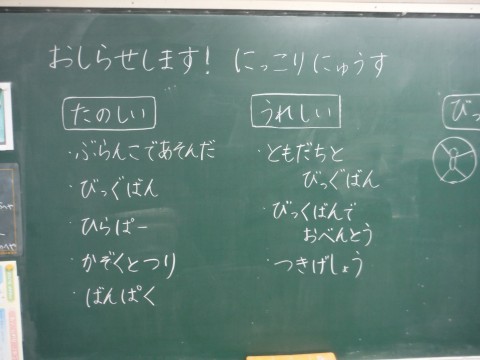 おしらせします! にっこりにゅうす
たのしい
・ぶらんこであそんだ
・びっぐばん
・ひらぱー
・かぞくとつり
・ばんぱく
うれしい
・ともだちと
びっぐばん
・びっくばんで
おべんとう
・つきげしょう
びっ